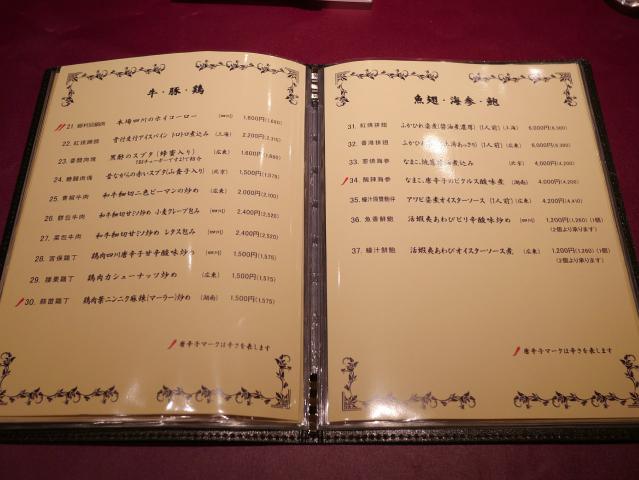 牛・豚・鶏
21. 回鍋肉 本場四川のホイコーロー (四川) 1,600円(1,680)
22. 紅焼蹄膀 骨付皮付アイスバイントロトロ煮込み (上海) 2,200円(2,310)
23. 香醋肉塊 黒酢のスブタ(蜂蜜入り) (広東) 1,600円(1,680)
24. 糖醋肉塊 昔ながらの赤いスブタ(山査子入り) (北京) 1,500円(1,575)
25. 青椒牛肉 和牛細切二色ピーマンの炒め (広東) 2,000円(2,100)
26. 餅包牛肉 和牛細切甘ミソ炒め 小麦クレープ包み (四川) 2,400円(2,520)
27. 菜包牛肉 和牛細切甘ミソ炒め レタス包み (四川) 2,400円(2,520)
28. 宮保鶏丁 鶏肉四川唐辛子甘辛酸味炒め (四川) 1,500円(1,575)
29. 腰果鶏丁 鶏肉カシューナッツ炒め (広東) 1,500円(1,575)
30. 蒜苗鶏丁 鶏肉葉ニンニク麻辣(マーラー)炒め (湖南) 1,500円(1,575)
唐辛子マークは辛さを表します
魚翅・海参・鮑
31. 紅焼排翅 ふかひれ姿煮(醤油煮濃厚) (1人前) (上海) 6,000円(6,300)
32. 香港排翅 (1人前) (広東) 6,000円(6,300)
33. 葱焼海参 なまこ、焼葱醤油煮込み (北京) 4,000円(4,200)
34. 酸辣海参 なまこ、唐辛子のピクルス酸味煮 (湖南) 4,000円(4,200)
35. アワビ姿煮オイスターソース (1人前) (広東) 4,200円(4,410)
36. 魚香鮮鮑 活蝦夷あわびピリ辛酸味炒め (四川) 1,200円(1,260) (1個)
(2個より承ります)
37. 蠔汁鮮鮑 活蝦夷あわびオイスターソース煮 (広東) 1,200円(1,260) (1個)
(2個より承ります)
唐辛子マークは辛さを表します